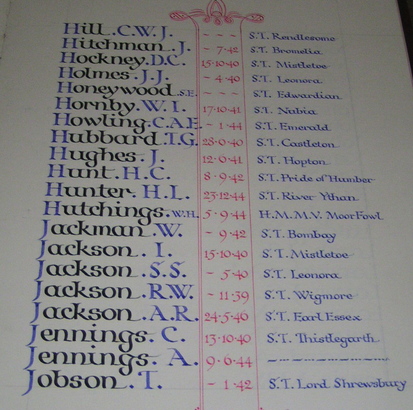 Hill. C.W.J. - - - S.T. Rendlesome
Hitchman. J. - 7·42 S.T. Bromelia
Hockney. D.C. 15·10·40 S.T. Mistletoe
Holmes. J.J. - 4·40 S.T. Leonora
Honeywood. S.E. - - - S.T. Edwardian
Hornby. W.I. 17·10·41 S.T. Nubia
Howling. C.A.E. - 1·44 S.T. Emerald
Hubbard. T.G. 28·6·40 S.T. Castleton
Hughes. J. 12·6·41 S.T. Hopton
Hunt. H.C. 8·9·42 S.T. Pride of Humber
Hunter. H.L. 23·12·44 S.T. River Ythan
Hutchings. W.H. 5·9·44 H.M.M.V. MoorFowl
Jackman. W. - 9·42 S.T. Bombay
Jackson. I. 15·10·40 S.T. Mistletoe
Jackson. S.S. - 5·40 S.T. Leonora
Jackson. R.W. - 11·39 S.T. Wigmore
Jackson. A.R. 24·5·46 S.T. Earl Essex
Jennings. C. 13·10·40 S.T. Thistlegarth
Jennings. A. 9·6·44
Jobson. T. - 1·42 S.T. Lord Shrewsbury